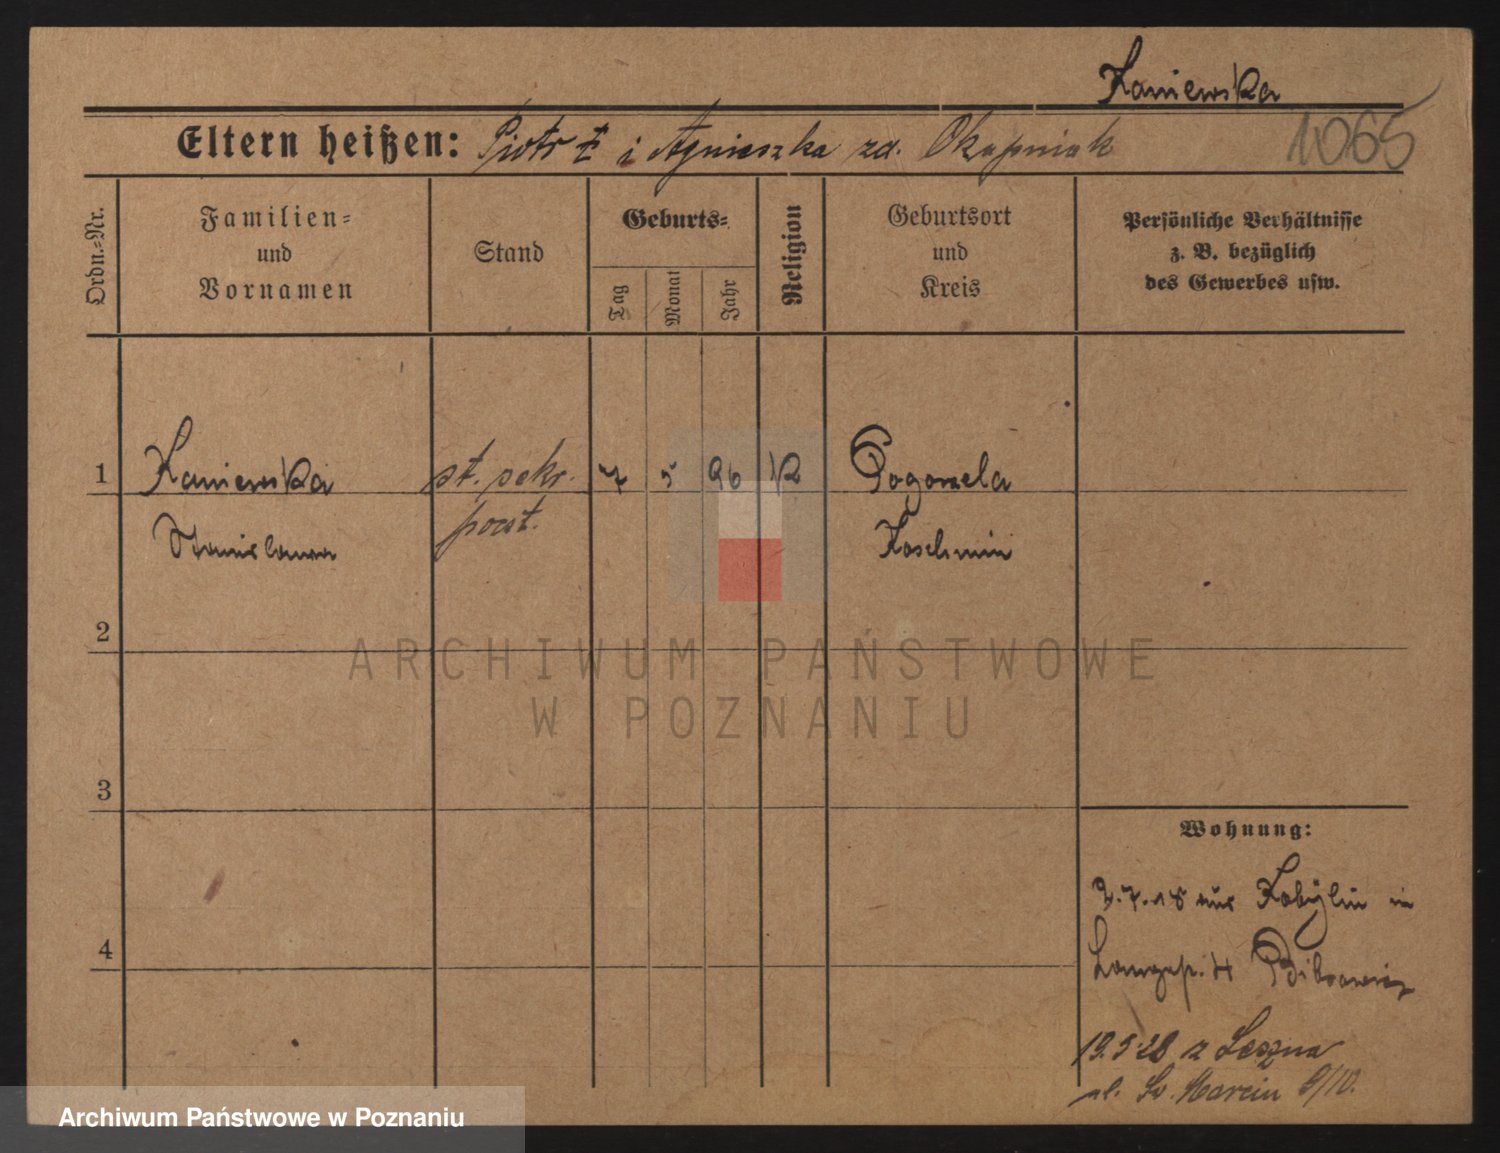 Kaniewska
Eltern heißen: Piotr † i Agnieszka zd. Okupniak
1065
Ordn.=Nr.
Familien=
und
Vornamen
Stand
Geburts=
Tag
Monat
Jahr
Religion
Geburtsort
und
Kreis
Persönliche Verhältnisse
z. B. bezüglich
des Gewerbes usw.
1 Kaniewska st. sekr. 7 5 96 k Pogorzela
Stanislawa poczt. Koschmin
2
3
4
Wohnung:
2.7.18 aus Kobylin in
Langestr. 4
19.5.28 z Leszna
ul. Św. Marcin 9/10.
ARCHIWUM PAŃSTWOWE
W POZNANIU
Archiwum Państwowe w Poznaniu